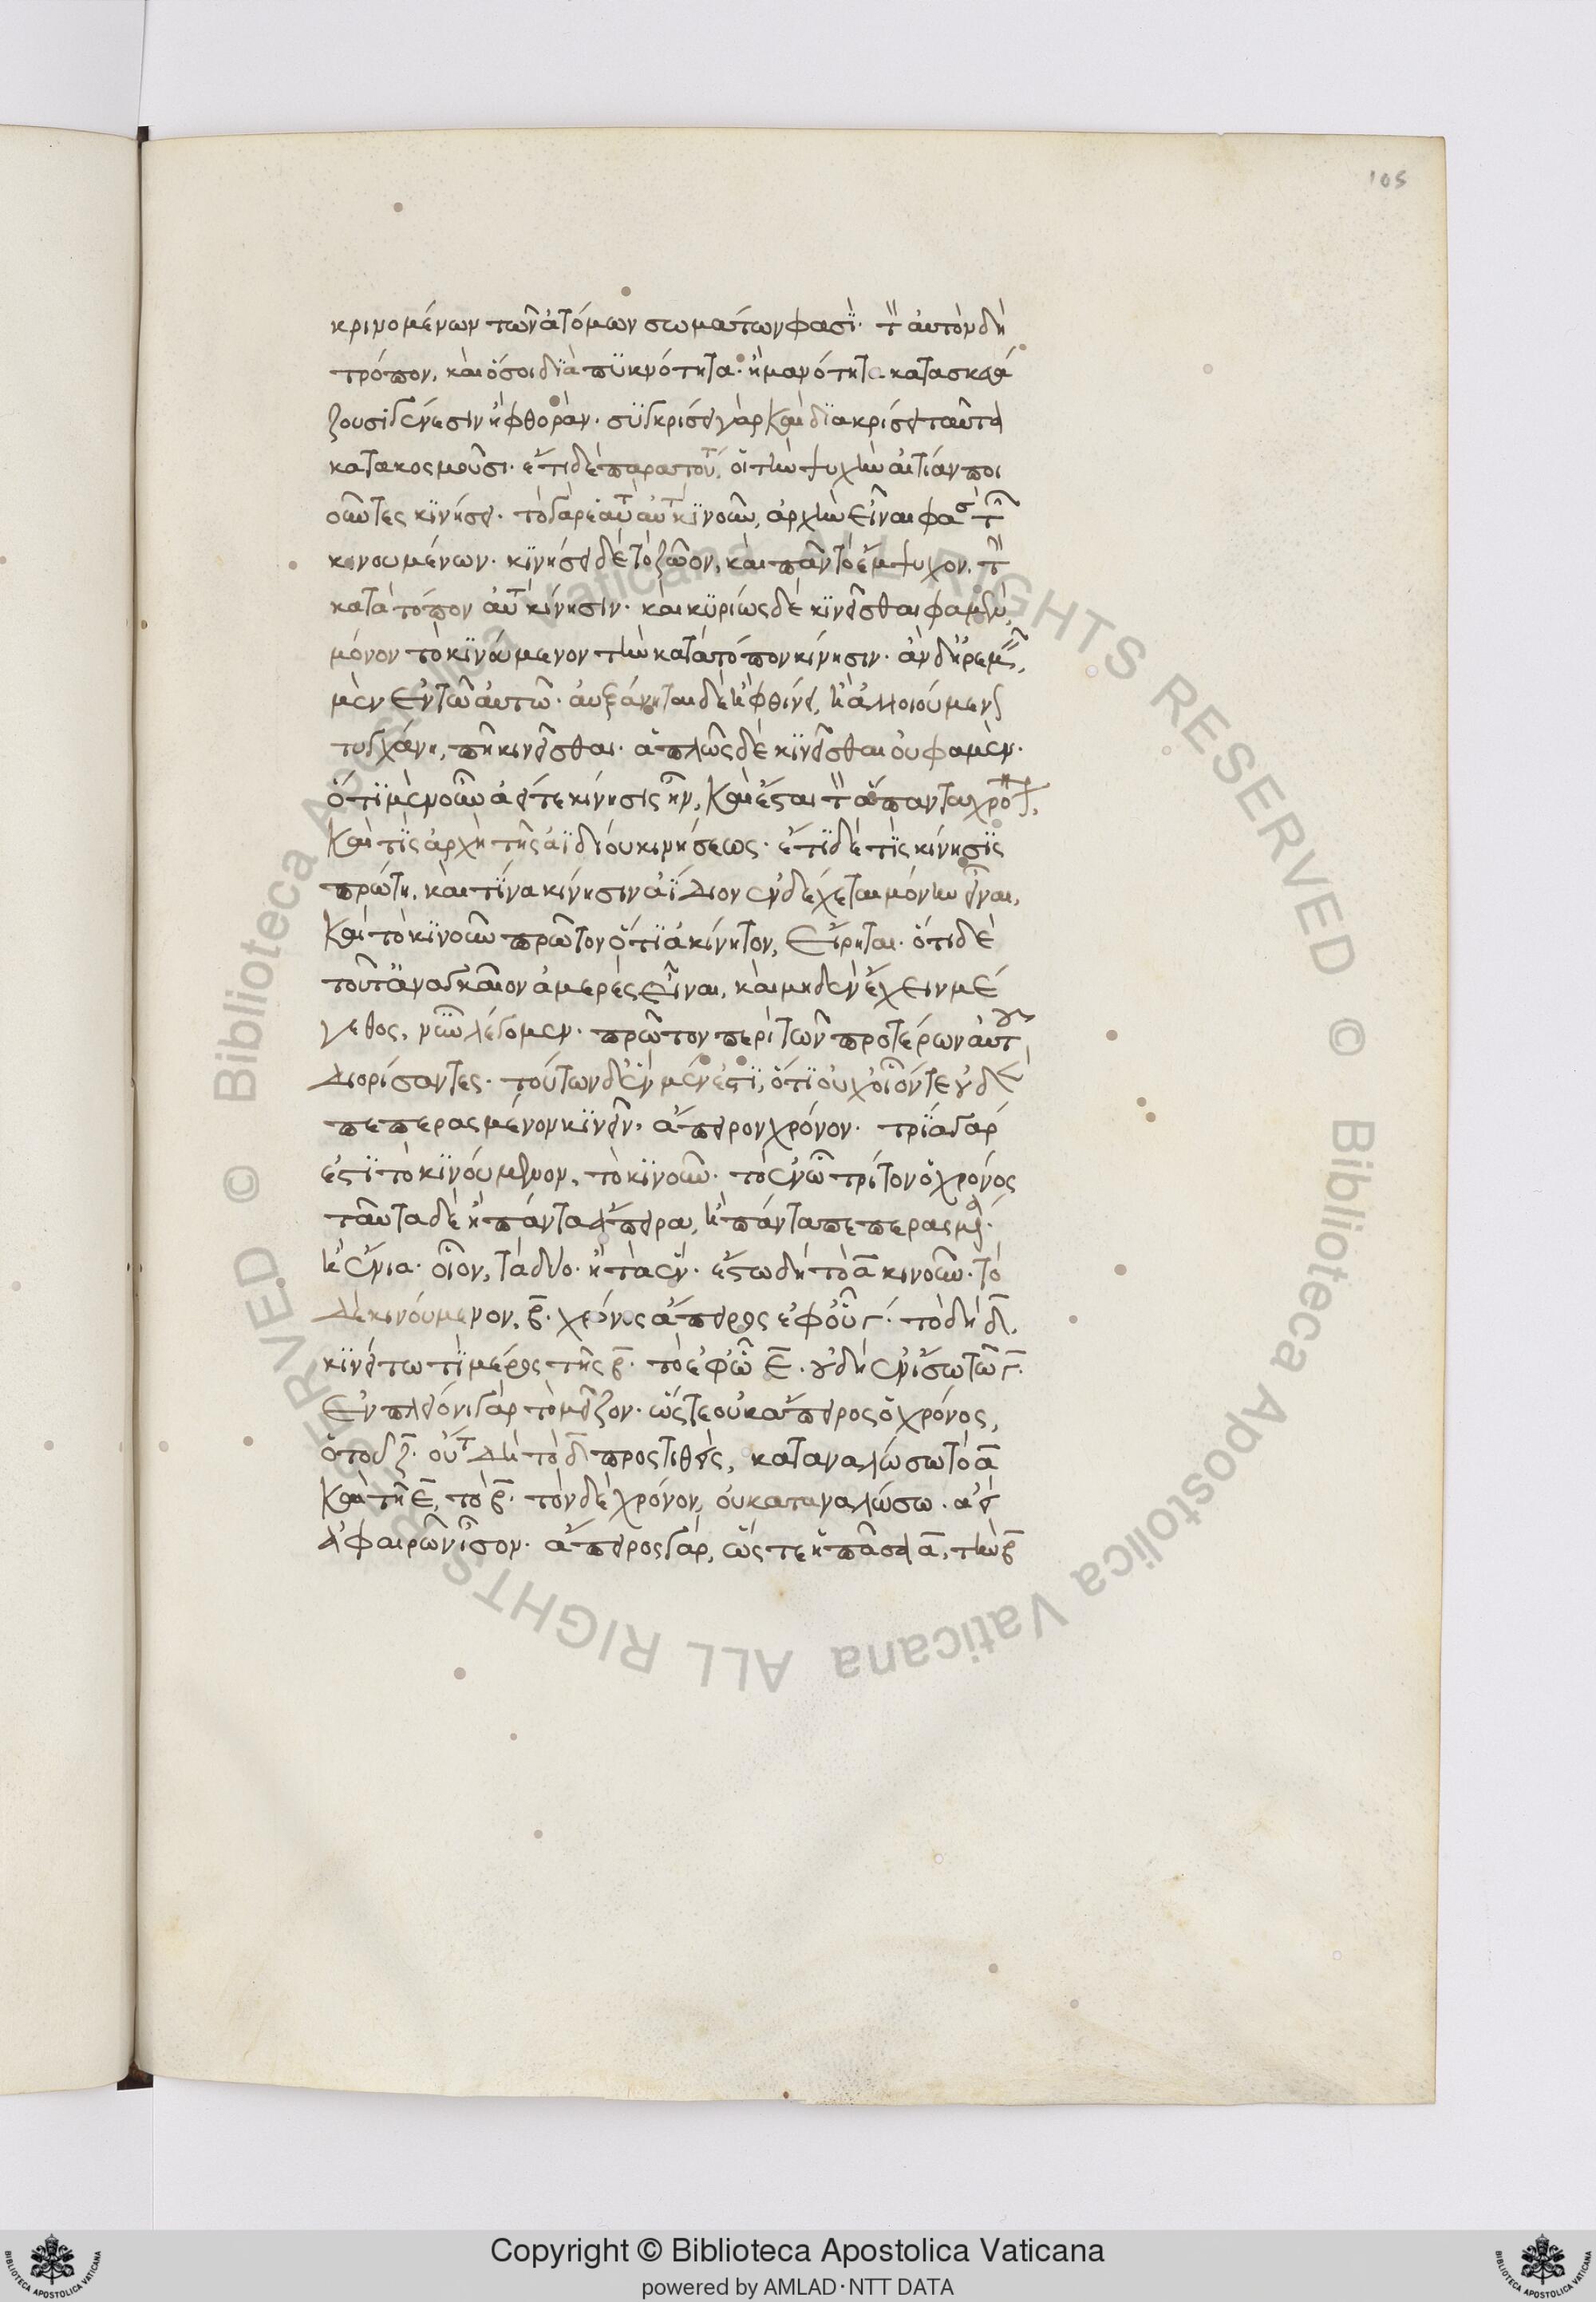 105
κρινομένων τῶν ἀτόμων σωμάτων φασΐ· τ̀ὸν αὐτὸν δὴ
τρόπον, καὶ ὅσοι διὰ πϋκνότητα· ἢ μανότητα κατασκευά
ζουσι γένεσιν ἢ φθορὰν· συγκρίσει γὰρ καὶ διακρίσει ταῦτα
κατακοσμοῦσι· ἔτι δὲ παρα τού, οἱ τὴν ψυχὴν αἰτίαν ποι
οῦντες κινήσει· τὸ γὰρ ἑαυτὸ αὐτὸ κινοῦν, ἀρχὴν εἶναι φασὶ τῶν
κινουμένων· κινήσει δὲ τὸ ζῶον, καὶ πᾶν τὸ ἔμψυχον, τὴν
κατὰ τόπον αὐτὸ κίνησιν· καὶ κυρίως δὲ κινεῖσθαι φαμὲν,
μόνον τὸ κινούμενον τὴν κατὰ τόπον κίνησιν· ἂν δ' ἠρεμῆ,
μὲν ἐν τῶ αὐτῶ· αὐξάνηται δὲ ἢ φθίνει, ἢ ἀλλοιούμενον
τυγχάνη, πῆ κινεῖσθαι· ἁπλῶς δὲ κινεῖσθαι οὐ φαμὲν·
ὅτι μὲν οὖν ἀεί τε κίνησις ἦν, καὶ ἔσται τὸν ἅπαντα χρόνον,
καὶ τίς ἀρχὴ τῆς ἀϊδίου κινήσεως· ἔτι δὲ τίς κίνησις
πρώτη, καὶ τίνα κίνησιν ἀΐδιον ἐνδέχεται μόνην εἶναι,
καὶ τὸ κινοῦν πρῶτον ὅτι ἀκίνητον, εἴρηται· ὅτι δὲ
τοῦτ' ἀναγκαῖον ἀμερὲς εἶναι, καὶ μηδὲν ἔχειν μέ
γεθος, νῦν λέγομεν· πρῶτον περὶ τῶν προτέρων αὐτοῦ
διορίσαντες· τούτων δ' ἓν μέν ἐστι, ὅτι οὐχ οἷόν τε οὐδὲν
πεπερασμένον κινεῖν, ἄπειρον χρόνον· τρία γάρ
ἐστι τὸ κινούμενον, τὸ κινοῦν· τὸ ἐν ὧ τρίτον ὁ χρόνος
ταῦτα δὲ ἢ πάντα ἄπειρα, ἢ πάντα πεπερασμένα·
ἢ ἔνια· οἷον, τὰ δύο· ἢ τὸ ἕν· ἔστω δὴ τὸ α̅ κινοῦν· τὸ
δὲ κινούμενον, β̅· χρόνος ἄπειρος ἐφ' οὗ γ· τὸ δὴ δ̅,
κινείτω τὶ μέρος τῆς β̅· τὸ ἐφ' ὧ ε̅· οὐ δὴ ἐν ἴσω τῶ γ̅·
ἐν πλείονι γὰρ τὸ μεῖζον· ὥστε οὐκ ἄπειρος ὁ χρόνος,
ὁ τὸ ζ̅· οὕτω δὴ τὸ δ̅ προστιθεὶς, καταναλώσω τὸ α̅
καὶ τῆ ε̅, τὸ β̅· τὸν δὲ χρόνον, οὐ καταναλώσω· ἀεὶ
ἀφαιρῶν ἴσον· ἄπειρος γάρ, ὥστε ἡ πᾶσα α̅, τὴν β̅